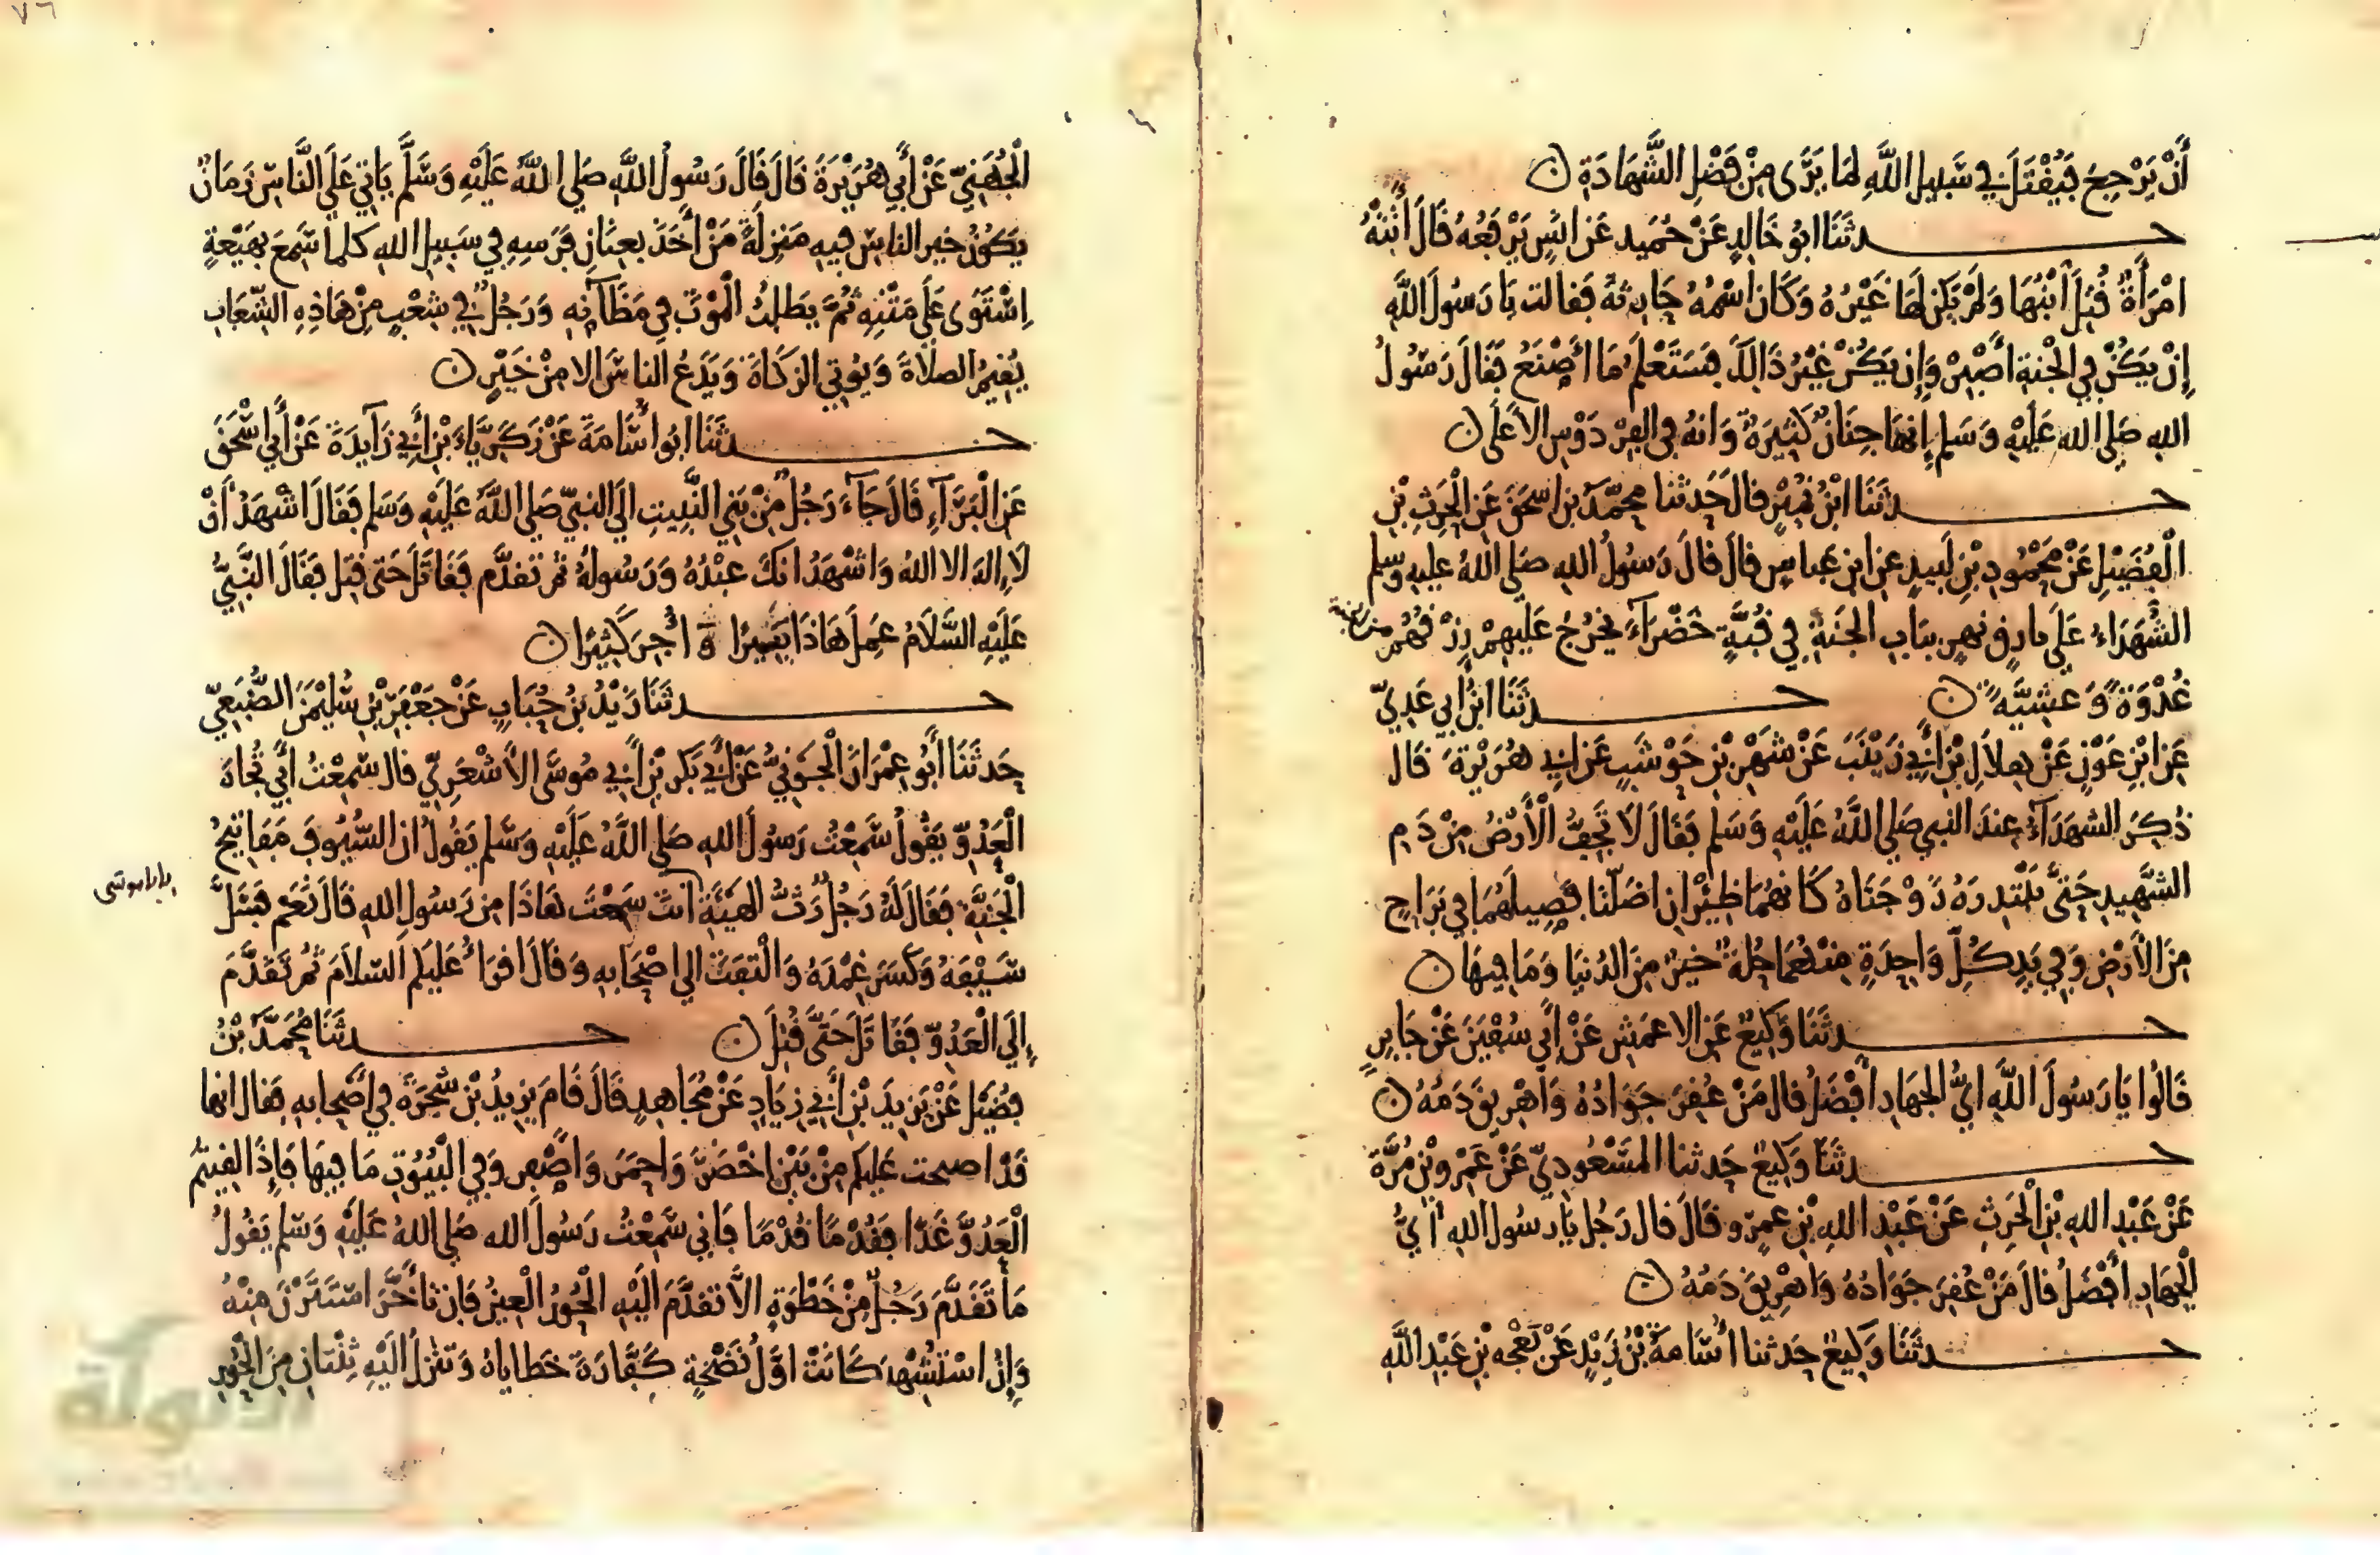 أَنْ يَرْجِعَ فَيُقْتَلَ فِي سَبِيلِ اللَّهِ لِمَا يَرَى مِنْ فَضْلِ الشَّهَادَةِ ن
حدثَنَا ابُو خَالِدٍ عَنْ حُمَيد عَن انَسٍ يَرْفَعُه قَالَ أَتَتْهُ
امْرَأَةٌ قُتِلَ ابْنُهَا وَلَمْ يَكُن لَهَا غَيْرُهُ وَكَانَ اسْمُهُ حَارِثَةُ فَقالت يَا رَسُولَ اللَّهِ
إِنْ يَكُنْ فِي الْجَنةِ أَصْبِرْ وَإِن يَكُنْ غَيْرُ ذَالِكَ فَسَتَعْلَمُ مَا أَصْنَعُ فَقَالَ رَسُولُ
الله صَلى الله عَلَيْهِ وَسَلم إِنهَا جِنَانٌ كَثِيرَةٌ وَانهُ فى الفِرْدَوْسِ الأَعْلَى ن
حدثَنَا ابْنُ نُمَيْرٍ قال حَدثنا محمّدُ بن اسحَقَ عَنِ الْحَرِثِ بْنِ
الْفُضَيْلِ عَنْ مَحْمُودِ بْنِ لَبيدٍ عن ابن عَباسٍ قالَ قالَ رَسُولُ اللهِ صَلى اللهُ عليهِ وَسلم
الشُّهَدَاءُ عَلَى بَارِقٍ نهرٍ ببَابِ الجَنةِ فِي قُبَّةٍ خَضْرَاءَ يَخرُجُ عَلَيهِمْ رِزْقُهُمْ من الجنة
غُدْوَةً وَعَشِيَّةً ن حدثَنَا ابنُ ابي عَدِيّ
عَن ابْنِ عَوْنٍ عَنْ هِلاَلِ بْنِ أَبِي زَيْنَبَ عَنْ شَهْرِ بْنِ حَوْشَبٍ عَن ابِي هُرَيْرَةَ قَال
ذُكِرَ الشهَدَآءُ عِندَ النبي صَلى اللَّهُ عَلَيْهِ وَسَلم فَقَالَ لاَ تَجِفُّ الْأَرْضُ مِنْ دَمِ
الشَّهِيدِ حَتَّى تَبْتَدِرَهُ زَوْجَتَاهُ كَانهُمَا ظِئْرَان اضَلّتا فَصِيلَهُمَا في بَرَاحٍ
مِنَ الأَرْضِ وَفِي يَدِ كُلِّ وَاحِدَةٍ مِنْهُمَا حُلةٌ خَيرٌ مِنَ الدُّنيَا وَمَا فِيهَا ن
حدثَنَا وَكِيعٌ عَن الاعمَشِ عَنْ أَبِي سُفْيَنَ عَنْ جَابِرٍ
قَالُوا يَا رَسُولَ اللَّهِ ايُّ الْجِهَادِ أَفْضَلُ قالَ مَنْ عُقِرَ جَوَادُهُ وَأُهْرِيقَ دَمُهُ ن
حدثَنَا وَكِيعٌ حَدثنا المَسْعُودِيّ عَنْ عَمْرِو بْنِ مُرَّةَ
عَنْ عَبْدِ اللهِ بْنِ الْحَرِثِ عَنْ عَبْدِ اللهِ بْنِ عمرو قَالَ قال رَجُل يَا رسُولَ اللهِ أَيُّ
الْجِهَادِ أَفْضَلُ قالَ مَنْ عُقِرَ جَوَادُهُ وَاُهْرِيقَ دَمُهُ ن
حدثَنَا وَكِيعٌ حَدثنا أُسَامَةُ بْنُ زَيْدٍ عَنْ بَعْجه بْنِ عَبْدِ اللَّهِ
٧٦
الْجُهَنِيّ عَنْ أَبِي هُرَيْرَةَ قَالَ قَالَ رَسُولُ اللَّهِ صَلى اللَّهُ عَلَيْهِ وَسَلَّمَ يَاتي عَلَى النَّاسِ زَمَانٌ
يَكُونُ خير الناسِ فيهِ مَنزِلَةً مَنْ أَخَذَ بعِنَانِ فَرَسِهِ في سَبيلِ اللهِ كلما سَمِعَ بِهَيْعَةٍ
اِسْتَوَى عَلَى مَتْنِهِ ثُمَّ يَطلبُ الْمَوْتَ فِي مَظَآنِه وَرَجُلٌ فِي شِعْبٍ مِنْ هَاذِهِ الشّعَابِ
يُقِيمُ الصلاَةَ وَيُوتي الزكَاةَ وَيَدَعُ الناسَ الا مِنْ خَيْرٍ ن
حدثَنَا ابُو اسَامَةَ عَنْ زَكَرِيَّاءَ بْنِ أَبِي زَآيِدَةَ عَنْ أَبِي اسْحَقَ
عَنِ الْبَرَآءِ قَالَ جَآءَ رَجُلٌ مِنْ بَنِي النَّبِيتِ الَى النبيّ صَلى اللَّهُ عَلَيْهِ وَسَلم فَقَالَ اشْهَدُ أَنْ
لاَ اِلهَ الا اللهُ وَاشْهَدُ انكَ عبْدُهُ وَرَسُولهُ ثم تقدَّم فَقَاتَلَ حَتى قتِل فَقَالَ النَّبِيُّ
عَلَيْهِ السَّلاَمُ عَمِلَ هَاذَا يَسِيرًا وَأُجِرَ كَثِيرًا ن
حدثَنَا زَيْدُ بْنُ حُبَابٍ عَنْ جَعْفَرِ بْنِ سُلَيْمَنَ الضُّبَعِيّ
حَدثَنَا أَبُو عِمْرَانَ الْجَوْنِيُّ عَنْ أَبِي بَكرِ بْنِ أَبِي مُوسَى الأَشْعَرِيّ قال سَمِعْتُ أَبِي تُجَاهَ
الْعَدُوّ يَقُولُ سَمِعْتُ رَسُولَ اللهِ صَلى اللَّهُ عَلَيْهِ وَسَلم يَقُولُ ان السُّيُوفَ مَفَاتِيحُ
الْجَنَّةِ فَقَالَ لَهُ رَجُلٌ رَثُّ الهَيْئَةِ أنتَ سَمِعْتَ هَاذَا مِن رَسُولِ اللهِ قَالَ نَعَم فَسَلَّ
يا با موسى
سَيْفَهُ وَكَسَرَ غِمْدَهُ وَالْتفَتَ الى اصْحَابِهِ وَقَالَ اقرَاُ عَلَيكم السّلاَمَ ثُم تَقَدَّمَ
إِلَى الْعَدُوّ فَقَاتَلَ حَتَّى قُتِلَ ن حدثَنَا مُحَمَّدُ بْنُ
فُضَيْل عَنْ يَزِيدَ بْنِ أَبِي زِيَادٍ عَنْ مُجَاهِدٍ قَالَ قَامَ يَزِيدُ بْن شَجَرَةَ فِي أَصْحَابِهِ فَقال انها
قَدْ اصبحت عَلَيكم مِنْ بَيْنِ اخْضَرَ وَاحمَرَ وَاصْفر وَفِي الْبُيُوتِ مَا فِيهَا فَإِذَا لقِيتُم
الْعَدُوَّ غَدًا فَقُدْمًا قُدْمًا فَانى سَمِعْتُ رَسُولَ الله صَلى اللهُ عَلَيْهِ وَسَلم يَقُولُ
مَا تَقَدَّمَ رَجُلٌ مِنْ خَطْوَةٍ الاَّ تقدَّمَ الَيْهِ الْحُورُ الْعِينُ فَاِن تأَخَّرَ اسْتَتَرْنَ مِنْهُ
وَإِنْ اسْتُشْهِدَ كَانَتْ اوَّلُ نَضْحَةٍ كَفَّارَةَ خَطاياهُ وَتَنْزلُ الَيْهِ ثِنْتَانِ مِنَ الْحُورِ
الألوكة